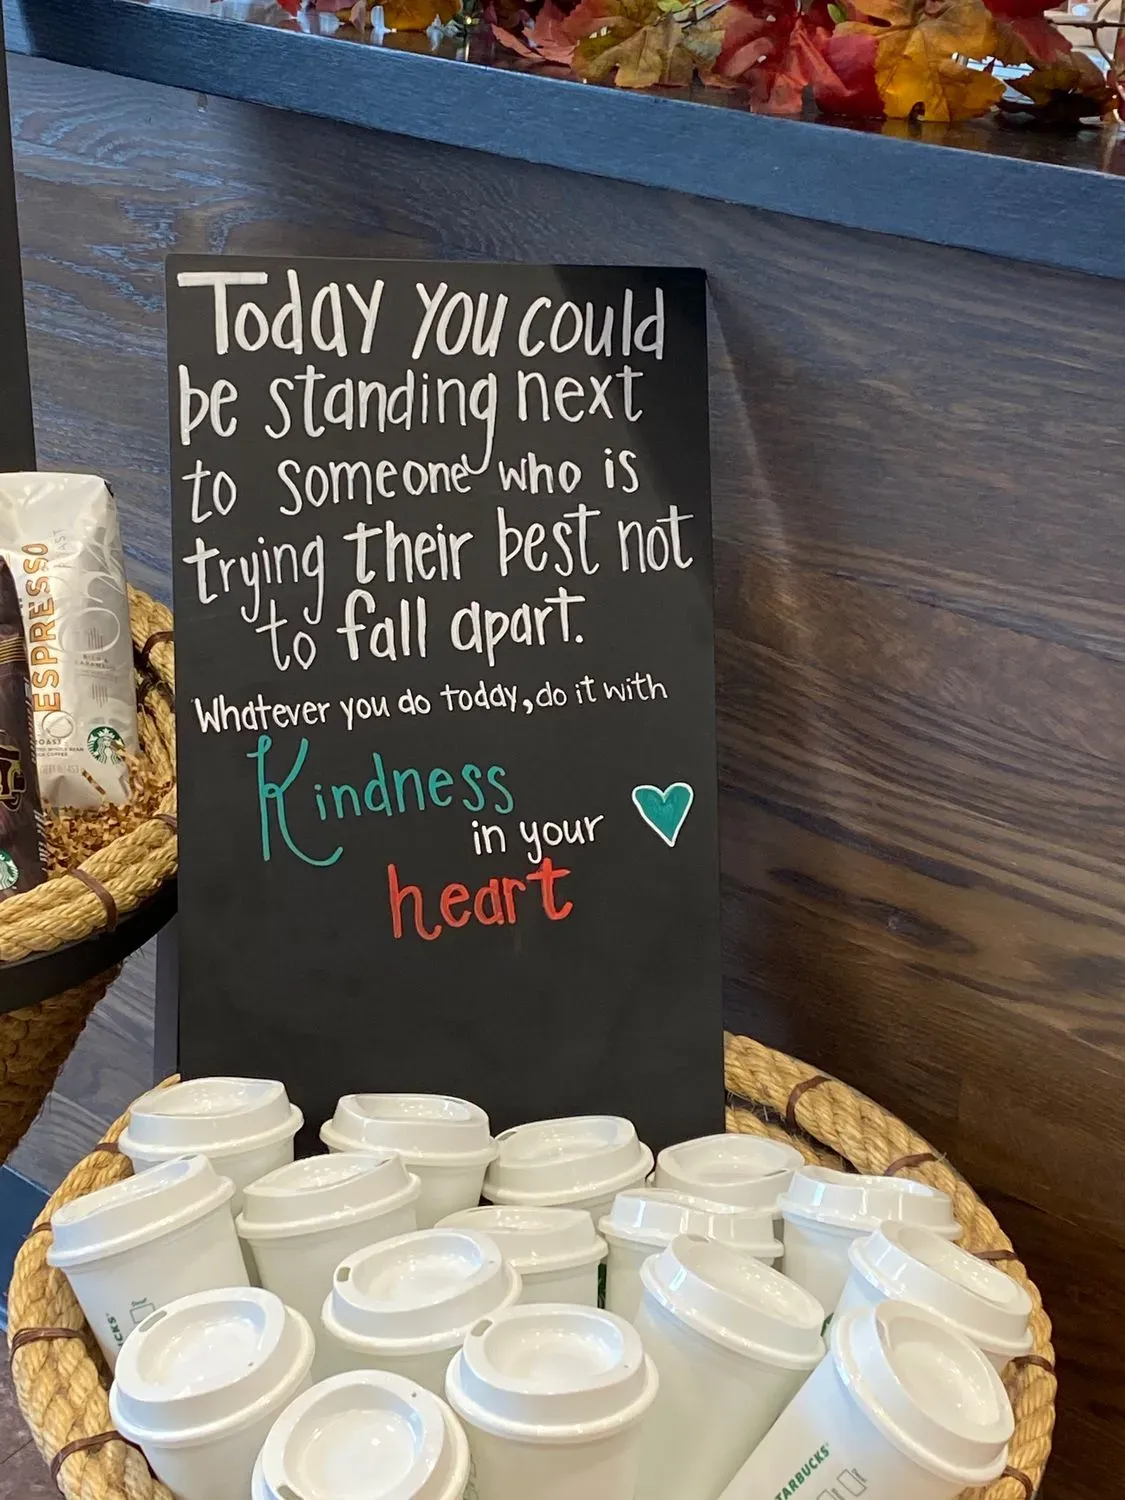 Today you could
be standing next
to someone who is
trying their best not
to fall apart.
Whatever you do today, do it with
Kindness
in your
heart
ESPRESSO
ROAST
STARBUCKS